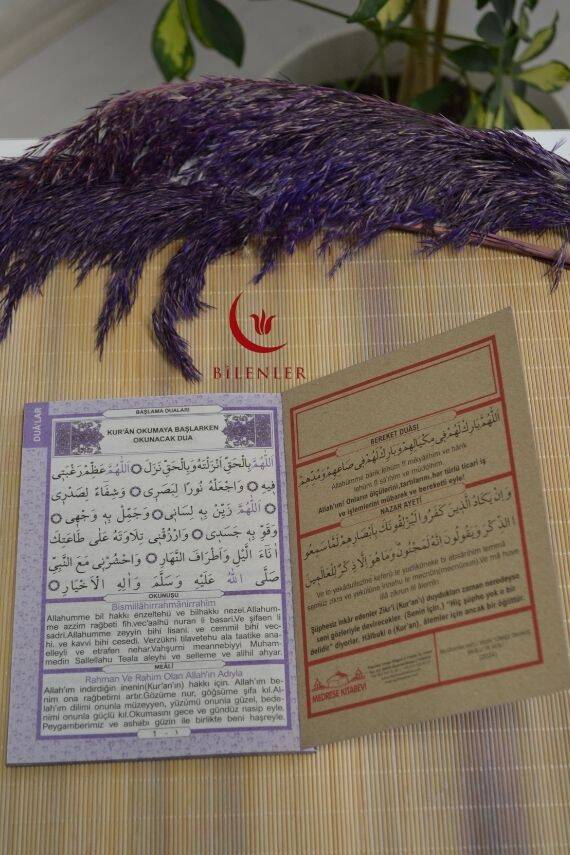 BİLENLER
DUÂ'LAR
BAŞLAMA DUALARI
KUR'ÂN OKUMAYA BAŞLARKEN
OKUNACAK DUA
اَللّٰهُمَّ بِالْحَقِّ اَنْزَلْتَهُ وَبِالْحَقِّ نَزَلَ اَللّٰهُمَّ عَظِّمْ رَغْبَتٖى
فٖيهِ وَاجْعَلْهُ نُورًا لِبَصَرٖى وَشِفَاءً لِصَدْرٖى
اَللّٰهُمَّ زَيِّنْ بِهٖ لِسَانٖى وَجَمِّلْ بِهٖ وَجْهٖى
وَقَوِّ بِهٖ جَسَدٖى وَارْزُقْنٖى تِلَاوَتَهُ عَلٰى طَاعَتِكَ
اٰنَاءَ الَّيْلِ وَاَطْرَافَ النَّهَارِ وَاحْشُرْنٖى مَعَ النَّبِىِّ
صَلَّى اللّٰهُ عَلَيْهِ وَسَلَّمَ وَاٰلِهِ الْاَخْيَارِ
OKUNUŞU
Bismillâhirrahmânirrahîm
Allahumme bil hakki enzeltehü ve bilhakkı nezel.Allahum-
me azzim rağbeti fih.vec'aalhü nuran li basari.Ve şifaen li
sadri.Allahumme zeyyin bihi lisani. ve cemmil bihi vec-
hi. ve kavvi bihi cesedi. Verzükni tilavetehu ala taatike ana-
elleyli ve etrafen nehar.Vahşurni meannebiyyi Muham-
medin Sallellahu Teala aleyhi ve selleme ve alihil ahyar.
MEÂLİ
Rahman Ve Rahim Olan Allah'ın Adıyla
Allah'ım indirdiğin inenin(Kur'an'ın) hakkı için. Allah'ım be-
nim ona rağbetimi artır.Gözüme nur, göğsüme şifa kıl.Al-
lah'ım dilimi onunla müzeyyen, yüzümü onunla güzel, bede-
nimi onunla güçlü kıl.Okumasını gece ve gündüz nasip eyle.
Peygamberimiz ve ashabı güzin ile birlikte beni haşreyle.
BEREKET DUÂSI
اَللّٰهُمَّ بَارِكْ لَهُمْ فٖى مِكْيَالِهِمْ وَبَارِكْ لَهُمْ فٖى صَاعِهِمْ وَمُدِّهِمْ
Allahümme bârik lehüm fî mikyâlihim ve bârik
lehüm fî sâ'ihim ve müddihim
Allah'ım! Onların ölçülerini,tartılarını,her türlü ticari iş
ve işlemlerini mübarek ve bereketli eyle!
NAZAR AYETİ
وَاِنْ يَكَادُ الَّذٖينَ كَفَرُوا لَيُزْلِقُونَكَ بِاَبْصَارِهِمْ لَمَّا سَمِعُوا
الذِّكْرَ وَيَقُولُونَ اِنَّهُ لَمَجْنُونٌ وَمَا هُوَ اِلَّا ذِكْرٌ لِلْعَالَمٖينَ
Ve in yekâdüllezîne keferû le yüzlikûneke bi ebsârihim lemmâ
semiûz zikra ve yekûlûne innehu le mecnûn(mecnûnun).Ve mâ huve
illâ zikrun lil âlemîn.
Şüphesiz inkâr edenler Zikr'i (Kur'an'ı) duydukları zaman neredeyse
seni gözleriyle devirecekler. (Senin için,) "Hiç şüphe yok o bir
delidir" diyorlar. Hâlbuki o (Kur'an), âlemler için ancak bir öğüttür.
MEDRESE KİTABEVİ